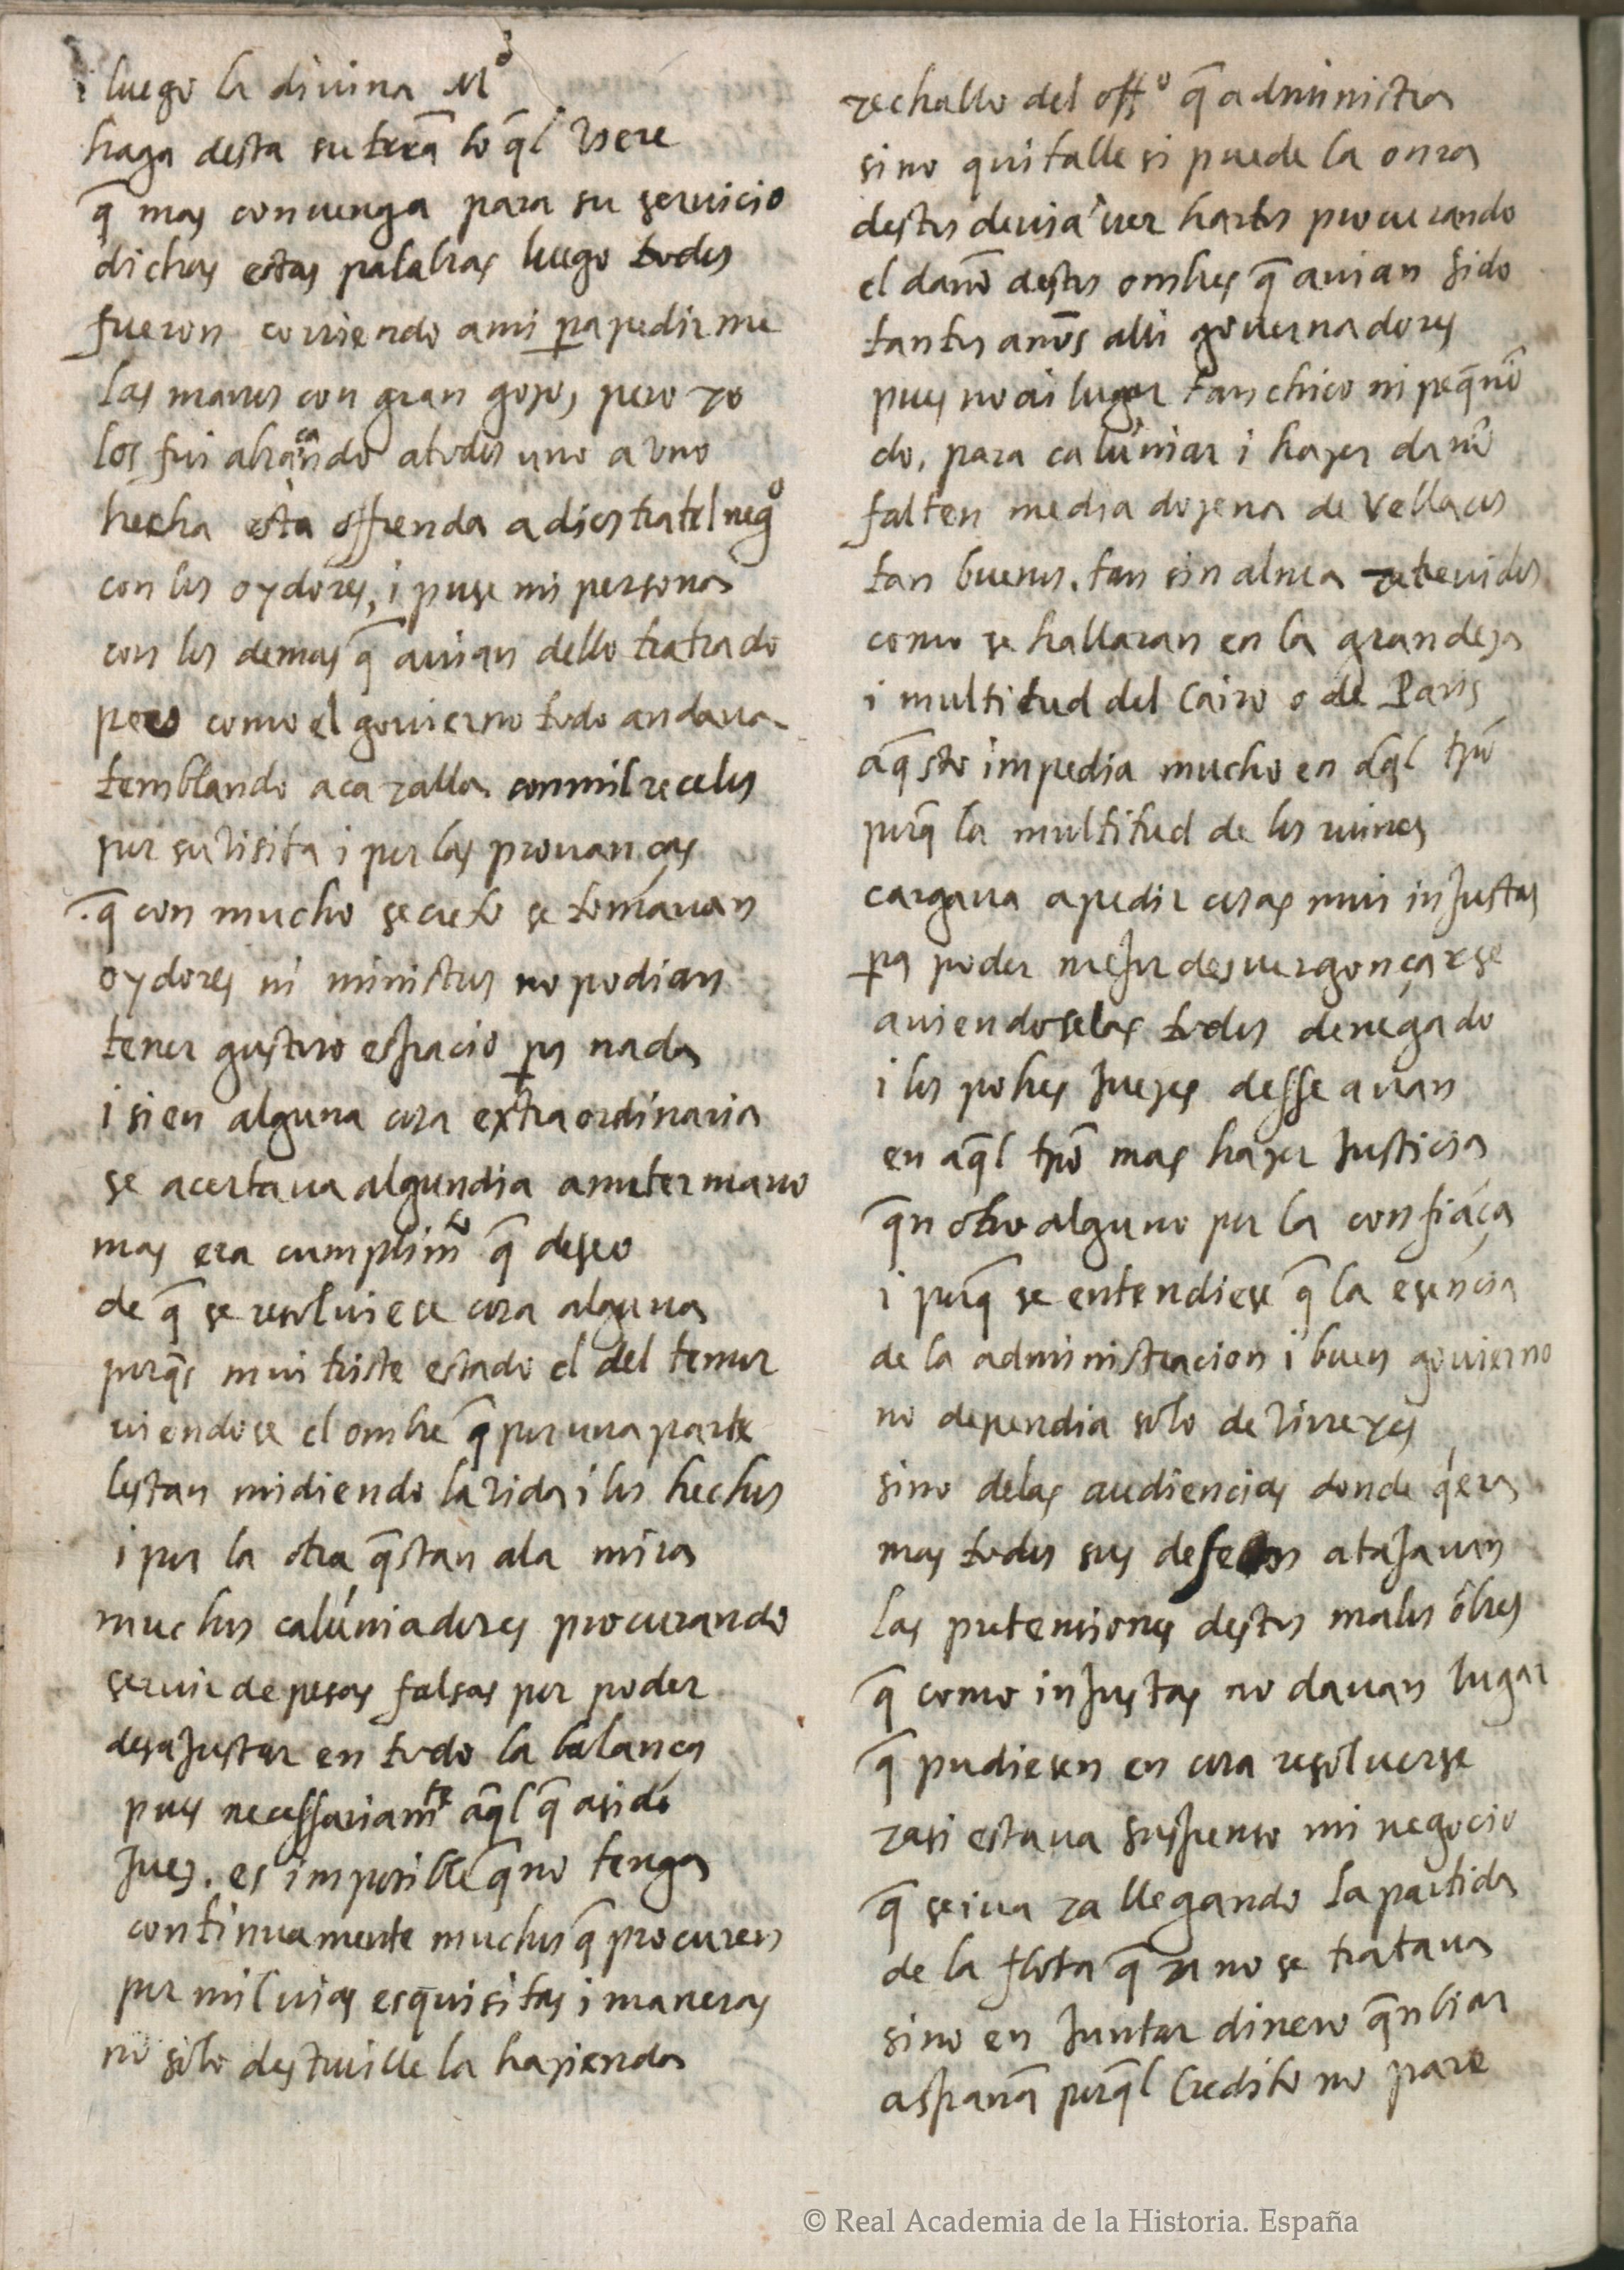 i luego la diuina Mᵒ
haga desta su trēā lo q̄l viere
q̄ mas conuenga para su seruicio
dichas estas palabras luego todos
fueron corriendo a mi pa pedirme
las manos con gran gozo, pero yo
los fui abraçando a todos uno a vno
hecha esta offrenda a dios tratel negᵒ
con los oydores, i puse mi persona
con los demas q̄ auian dello tratado
pero como el gouierno todo andaua
temblando aca yalla con mil recelos
por su visita i por las prouanças
q̄ con mucho secreto se tomauan
oydores ni ministros no podian
tener gusto ni espacio pa nada
i si en alguna cosa extraordinaria
se acertaua algun dia a meter mano
mas era cumplimᵗᵒ q̄ deseo
de q̄ se resoluiese cosa alguna
porq̄s mui triste estado el del temor
uiendose el ombre q̄ por una parte
lestan midiendo la vida i los hechos
i por la otra q̄stan ala mira
muchos calúniadores procurando
seruir de pesas falsas por poder
desajustar en todo la balança
pues necessariamᵗᵉ aq̄l q̄ a sido
juez. es imposible q̄ no tenga
continuamente muchos q̄ procuren
por mil uias esquisitas i maneras
no solo destruille la hazienda
yechallo del offᵒ q̄ administra
sino quitalle si puede la onra
destos deuia auer hartos procurando
el dano destos ombres q̄ auian sido
tantos anos alli gouernadores
pues no ai lugar tan chico ni peq̄no
do, para calúniar i hazer dano
falten media dozena de vellacos
tan buenos. tan sin alma yatreuidos
como se hallaran en la grandeza
i multitud del Cairo o de Paris
aq̄sto impedia mucho en aq̄l tpō
porq̄ la multitud de los ruines
cargaua a pedir cosas mui injustas
pa poder mejor desuergonçarse
auiendoselas todos denegado
i los pobres juezes desseauan
en aq̄l tpō mas hazer justicia
q̄n otro alguno por la confiāça
i porq̄ se entendiese q̄ la esencia
de la administracion i buen gouierno
no dependia solo de virreyes
sino delas audiencias donde q́era
mas todos sus deseos atajauan
las pretensiones destos malos ōbres
q̄ como injustas no dauan lugar
q̄ pudiesen en cosa resoluerse
yasi estaua suspenso mi negocio
q̄ se iua ya llegando la partida
de la flota q̄ ya no se trataua
sino en juntar dinero q̄nbiar
aspana porq̄l credito no pare
© Real Academia de la Historia. España